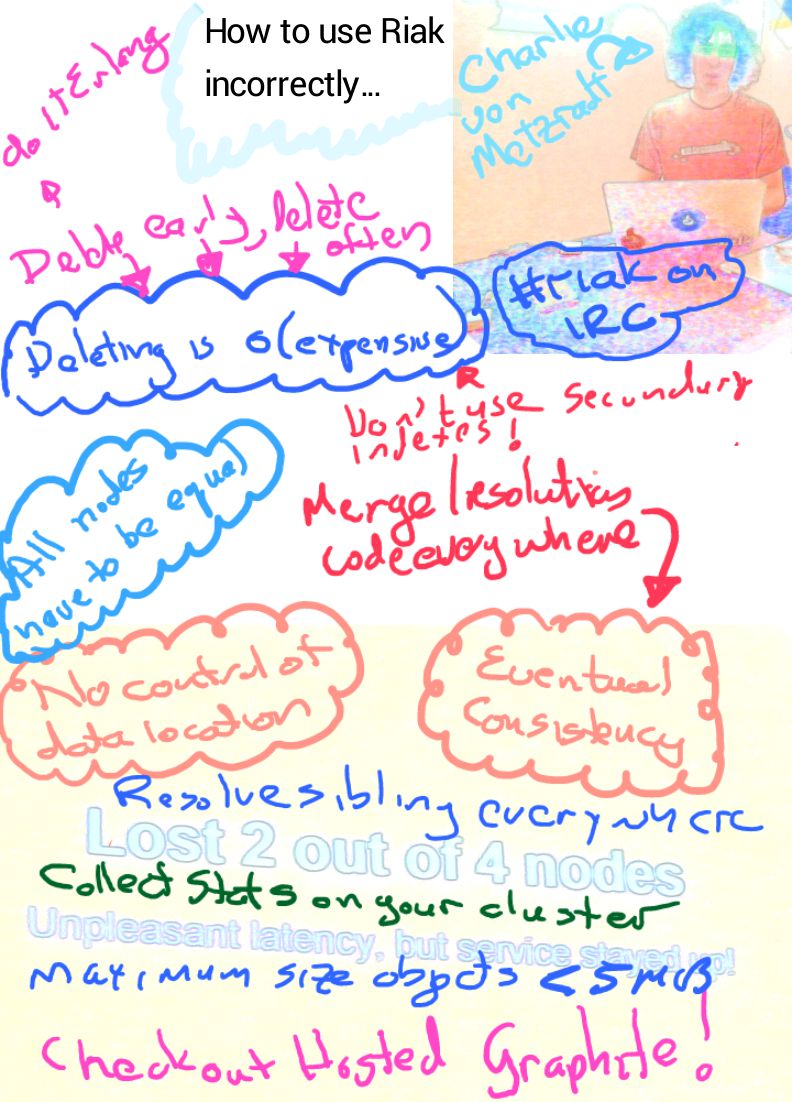 How to use Riak
incorrectly...
Charlie
von
Metzradt
do it Erlang
Delete early, Delete
often
#riak on
IRC
Deleting is O(expensive
Don't use secundary
indexes!
All nodes
have to be equal
Merge/resolution
code everywhere
No control of
data location
Eventual
Consistency
Resolve sibling everywhere
Lost 2 out of 4 nodes
Collect Stats on your cluster
Unpleasant latency, but service stayed up!
Maximum size objects <5MB
Checkout Hosted Graphite!